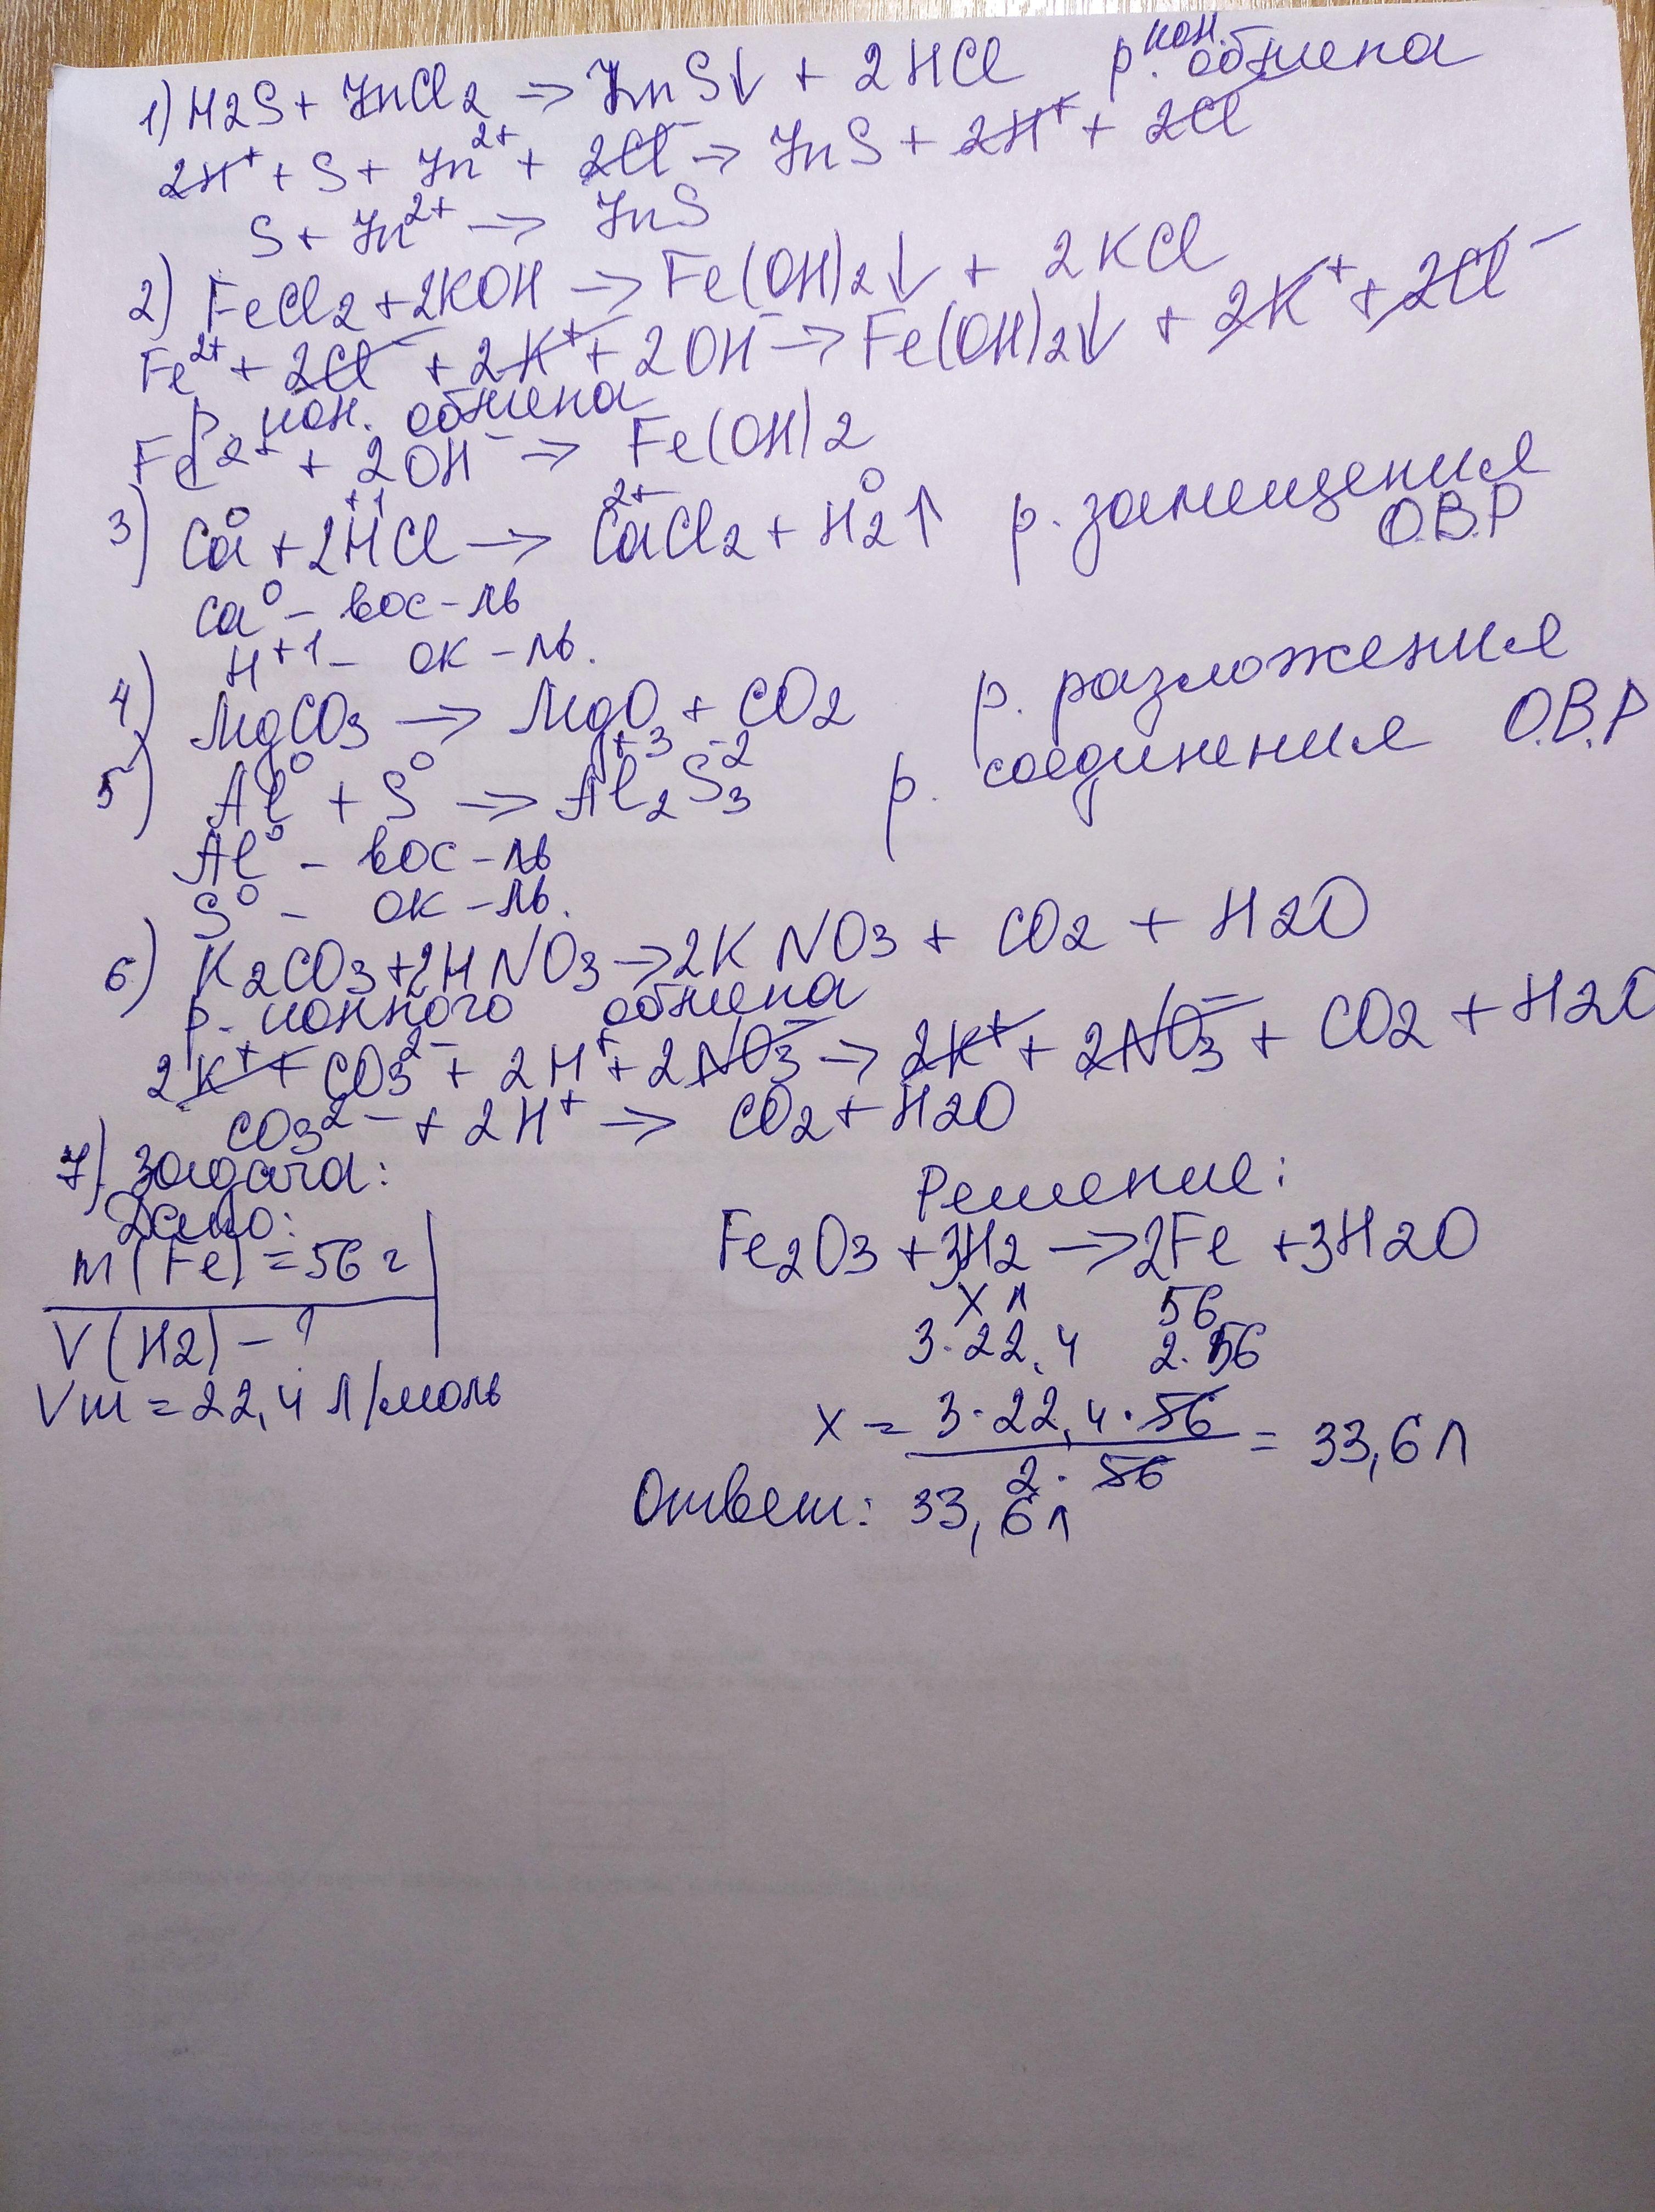 1) H2S + ZnCl2 → ZnS↓ + 2HCl р. ион. обмена
2H⁺ + S + Zn²⁺ + 2Cl⁻ → ZnS + 2H⁺ + 2Cl
S + Zn²⁺ → ZnS
2) FeCl2 + 2KOH → Fe(OH)2↓ + 2KCl
Fe²⁺ + 2Cl⁻ + 2K⁺ + 2OH⁻ → Fe(OH)2↓ + 2K⁺ + 2Cl⁻
р. ион. обмена
Fe²⁺ + 2OH⁻ → Fe(OH)2
3) Ca⁰ + 2H⁺¹Cl → Ca²⁺Cl2 + H2⁰↑ р. замещения
О.В.Р
Ca⁰ – вос-ль
H⁺¹ – ок-ль.
4) MgCO3 → MgO + CO2 р. разложения
5) Al⁰ + S⁰ → Al2⁺³S3⁻² р. соединения О.В.Р
Al⁰ – вос-ль
S⁰ – ок-ль.
6) K2CO3 + 2HNO3 → 2KNO3 + CO2 + H2O
р. ионного обмена
2K⁺ + CO3²⁻ + 2H⁺ + 2NO3⁻ → 2K⁺ + 2NO3⁻ + CO2 + H2O
CO3²⁻ + 2H⁺ → CO2 + H2O
7) Задача:
Дано:
m(Fe) = 56 г
V(H2) – ?
Vm = 22,4 л/моль
Решение:
Fe2O3 + 3H2 → 2Fe + 3H2O
x л 56
3·22,4 2·56
x = 3·22,4·56 / 2·56 = 33,6 л
Ответ: 33,6 л